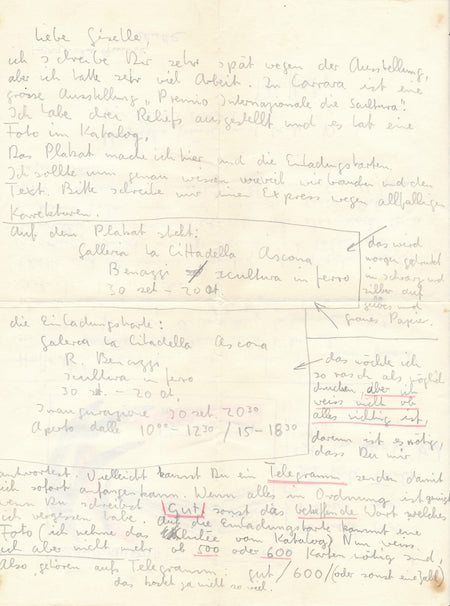 Liebe Giselle,
ich schreibe Dir sehr spät wegen der Ausstellung,
aber ich hatte sehr viel Arbeit. In Carrara ist eine
grosse Ausstellung „Premio Internazionale di Scultura".
Ich habe drei Reliefs ausgestellt und es hat eine
Foto im Katalog.
Das Plakat mache ich hier und die Einladungskarten.
Ich sollte nun genau wissen wieviel wir brauchen und den
Text. Bitte schreibe mir einen Express wegen allfälligen
Korrekturen.
Auf dem Plakat steht:
Galleria La Cittadella Ascona
Benazzi scultura in ferro
30 set – 20 Ot
das wird
morgen gedruckt
in schwarz und
silber auf
gelbes und
graues Papier.
die Einladungskarte:
Galeria La Citadella Ascona
R. Benazzi
scultura in ferro
30 set. – 20 Ot.
Inaugurazione 30 set 20 30
Aperto dalle 10 00 – 12 30 / 15 – 18 30
das möchte ich
so rasch als möglich
drucken, aber ich
weiss nicht ob
alles richtig ist,
darum ist es nötig,
dass Du mir
antwortest. Vielleicht kannst Du ein Telegramm senden damit
ich sofort anfangen kann. Wenn alles in Ordnung ist
wenn Du schreibst Gut, sonst das betreffende Wort welches
ich vergessen habe. Auf die Einladungskarte kommt eine
Foto (ich nehme das vom Katalog) Nun weiss
ich aber nicht mehr ob 500 oder 600 Karten nötig sind,
Also gehören aufs Telegramm: gut / 600 / (oder sonst eine Zahl)
das kostet ja nicht so viel.